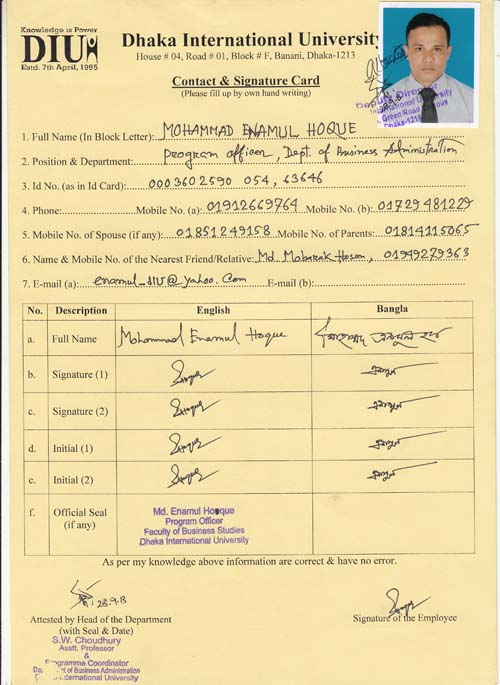 Knowledge is Power
DIU
Estd. 7th April, 1995
Dhaka International University
House # 04, Road # 01, Block # F, Banani, Dhaka-1213
Contact & Signature Card
(Please fill up by own hand writing)
Deputy Director
International University
Green Road
Dhaka-1215
1. Full Name (In Block Letter): MOHAMMAD ENAMUL HOQUE
2. Position & Department: Program officer, Dept. of Business Administration
3. Id No. (as in Id Card): 0003602590 054, 63646
4. Phone: Mobile No. (a): 01912669764 Mobile No. (b): 01729481229
5. Mobile No. of Spouse (if any): 01851249158 Mobile No. of Parents: 01814115065
6. Name & Mobile No. of the Nearest Friend/Relative: Md. Mobarak Hosen, 01949279363
7. E-mail (a): enamul_diu@yahoo.com E-mail (b):
No. Description English Bangla
a. Full Name Mohammad Enamul Hoque মোহাম্মদ এনামুল হক
b. Signature (1) এনামুল
c. Signature (2) এনামুল
d. Initial (1) এনামুল
e. Initial (2) এনামুল
f. Official Seal (if any)
Md. Enamul Hoque
Program Officer
Faculty of Business Studies
Dhaka International University
As per my knowledge above information are correct & have no error.
28.9.13
Attested by Head of the Department
(with Seal & Date)
Signature of the Employee
S.W. Choudhury
Asstt. Professor
&
Programme Coordinator
of Business Administration
International University